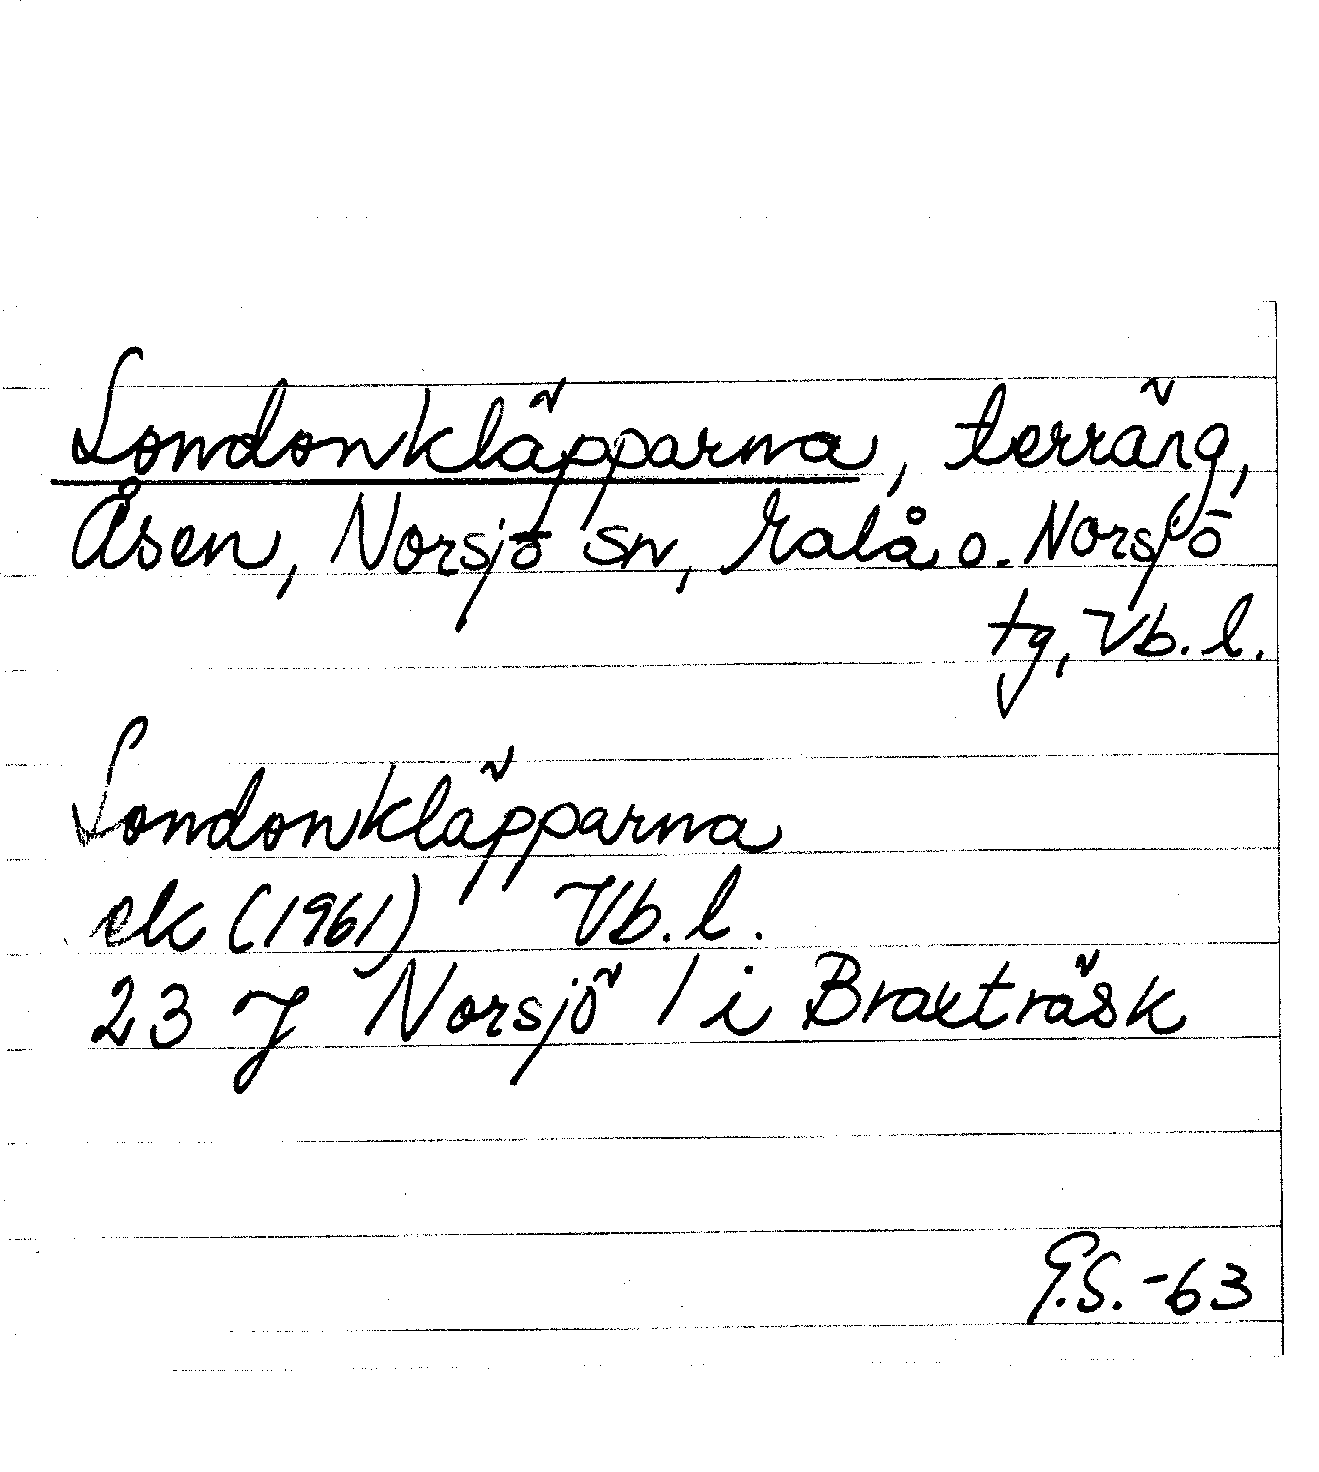 Londonkläpparna, terräng,
Åsen, Norsjö sn, Malå o. Norsjö
tg, Vb. l.
Londonkläpparna
ek (1961) Vb. l.
23 J Norsjö / i Braxträsk
G.S. -63